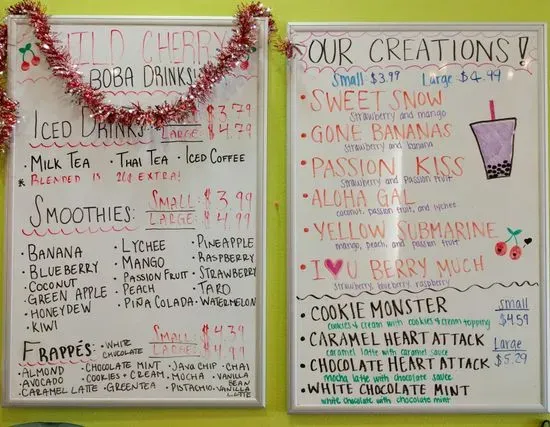 WILD CHERRY
BOBA DRINKS!
ICED DRINKS
SMALL: $3.79
LARGE: $4.79
• MILK TEA • THAI TEA • ICED COFFEE
* BLENDED IS 20¢ EXTRA!
SMOOTHIES:
SMALL: $3.99
LARGE: $4.99
• BANANA
• BLUEBERRY
• COCONUT
• GREEN APPLE
• HONEYDEW
• KIWI
• LYCHEE
• MANGO
• PASSION FRUIT
• PEACH
• PIÑA COLADA
• PINEAPPLE
• RASPBERRY
• STRAWBERRY
• TARO
• WATERMELON
FRAPPÉS:
SMALL: $4.39
LARGE: $4.99
• WHITE CHOCOLATE
• ALMOND
• AVOCADO
• CARAMEL LATTE
• CHOCOLATE MINT
• COOKIES + CREAM
• GREEN TEA
• JAVA CHIP
• MOCHA
• PISTACHIO
• CHAI
• VANILLA BEAN
• VANILLA LATTE
OUR CREATIONS!
Small $3.99 Large $4.99
• SWEET SNOW
Strawberry and mango
• GONE BANANAS
Strawberry and banana
• PASSION KISS
Strawberry and passion fruit
• ALOHA GAL
coconut, passion fruit, and lychee
• YELLOW SUBMARINE
mango, peach, and passion fruit
• I ♥ U BERRY MUCH
Strawberry, blueberry, raspberry
• COOKIE MONSTER
cookies & cream with cookies & cream topping
• CARAMEL HEART ATTACK
caramel latte with caramel sauce
• CHOCOLATE HEART ATTACK
mocha latte with chocolate sauce
• WHITE CHOCOLATE MINT
white chocolate with chocolate mint
Small
$4.59
Large
$5.29